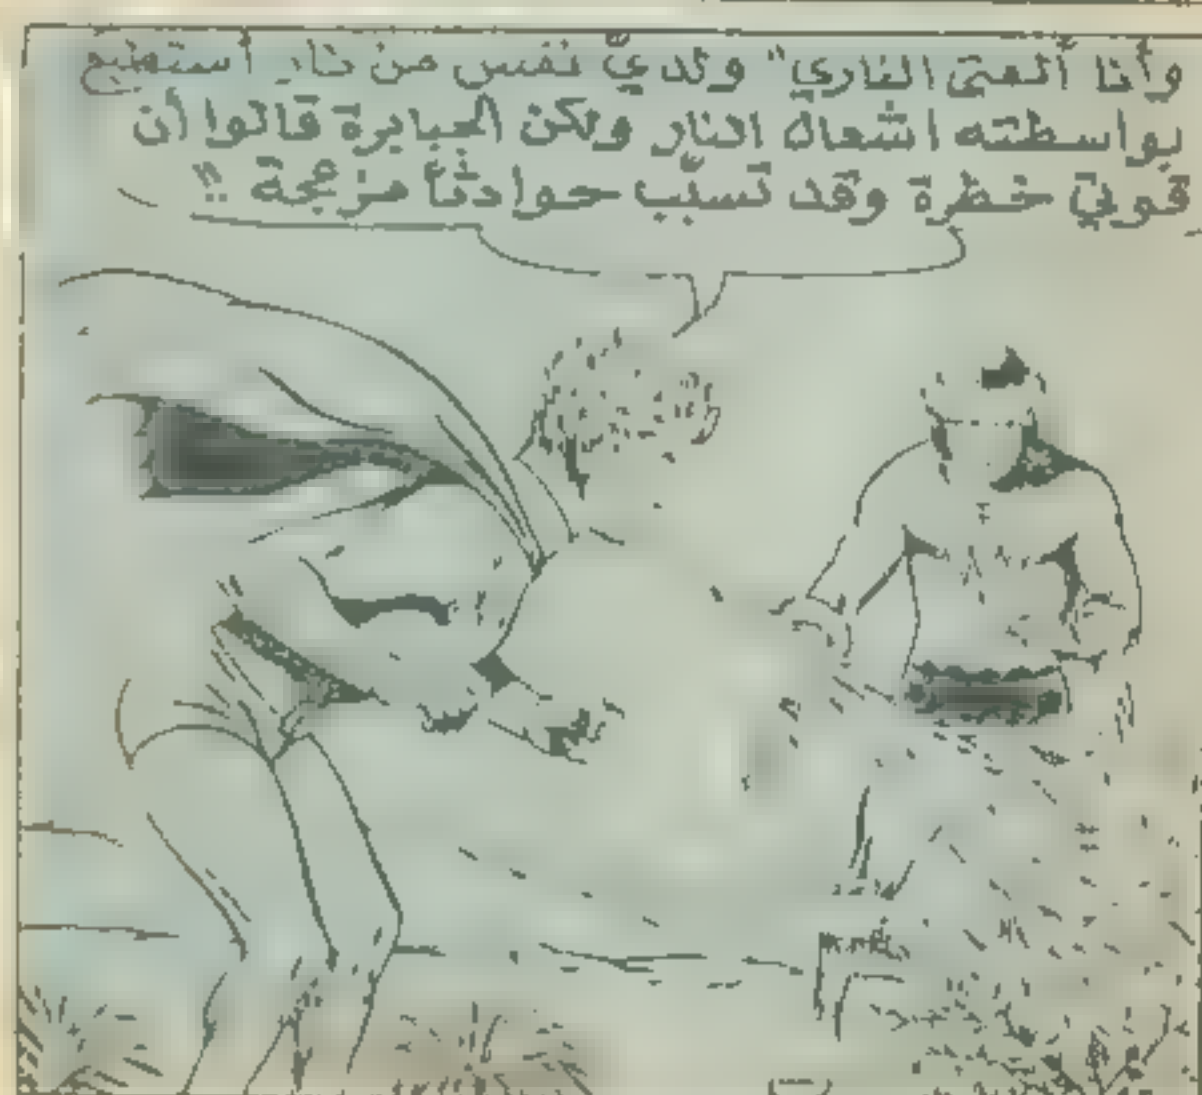 وأنا "الفتى الناري" ولديّ نفس من نار أستطيع
بواسطته اشعال النار ولكن الجبابرة قالوا أن
قوتي خطرة وقد تسبّب حوادثاً مزعجة !!